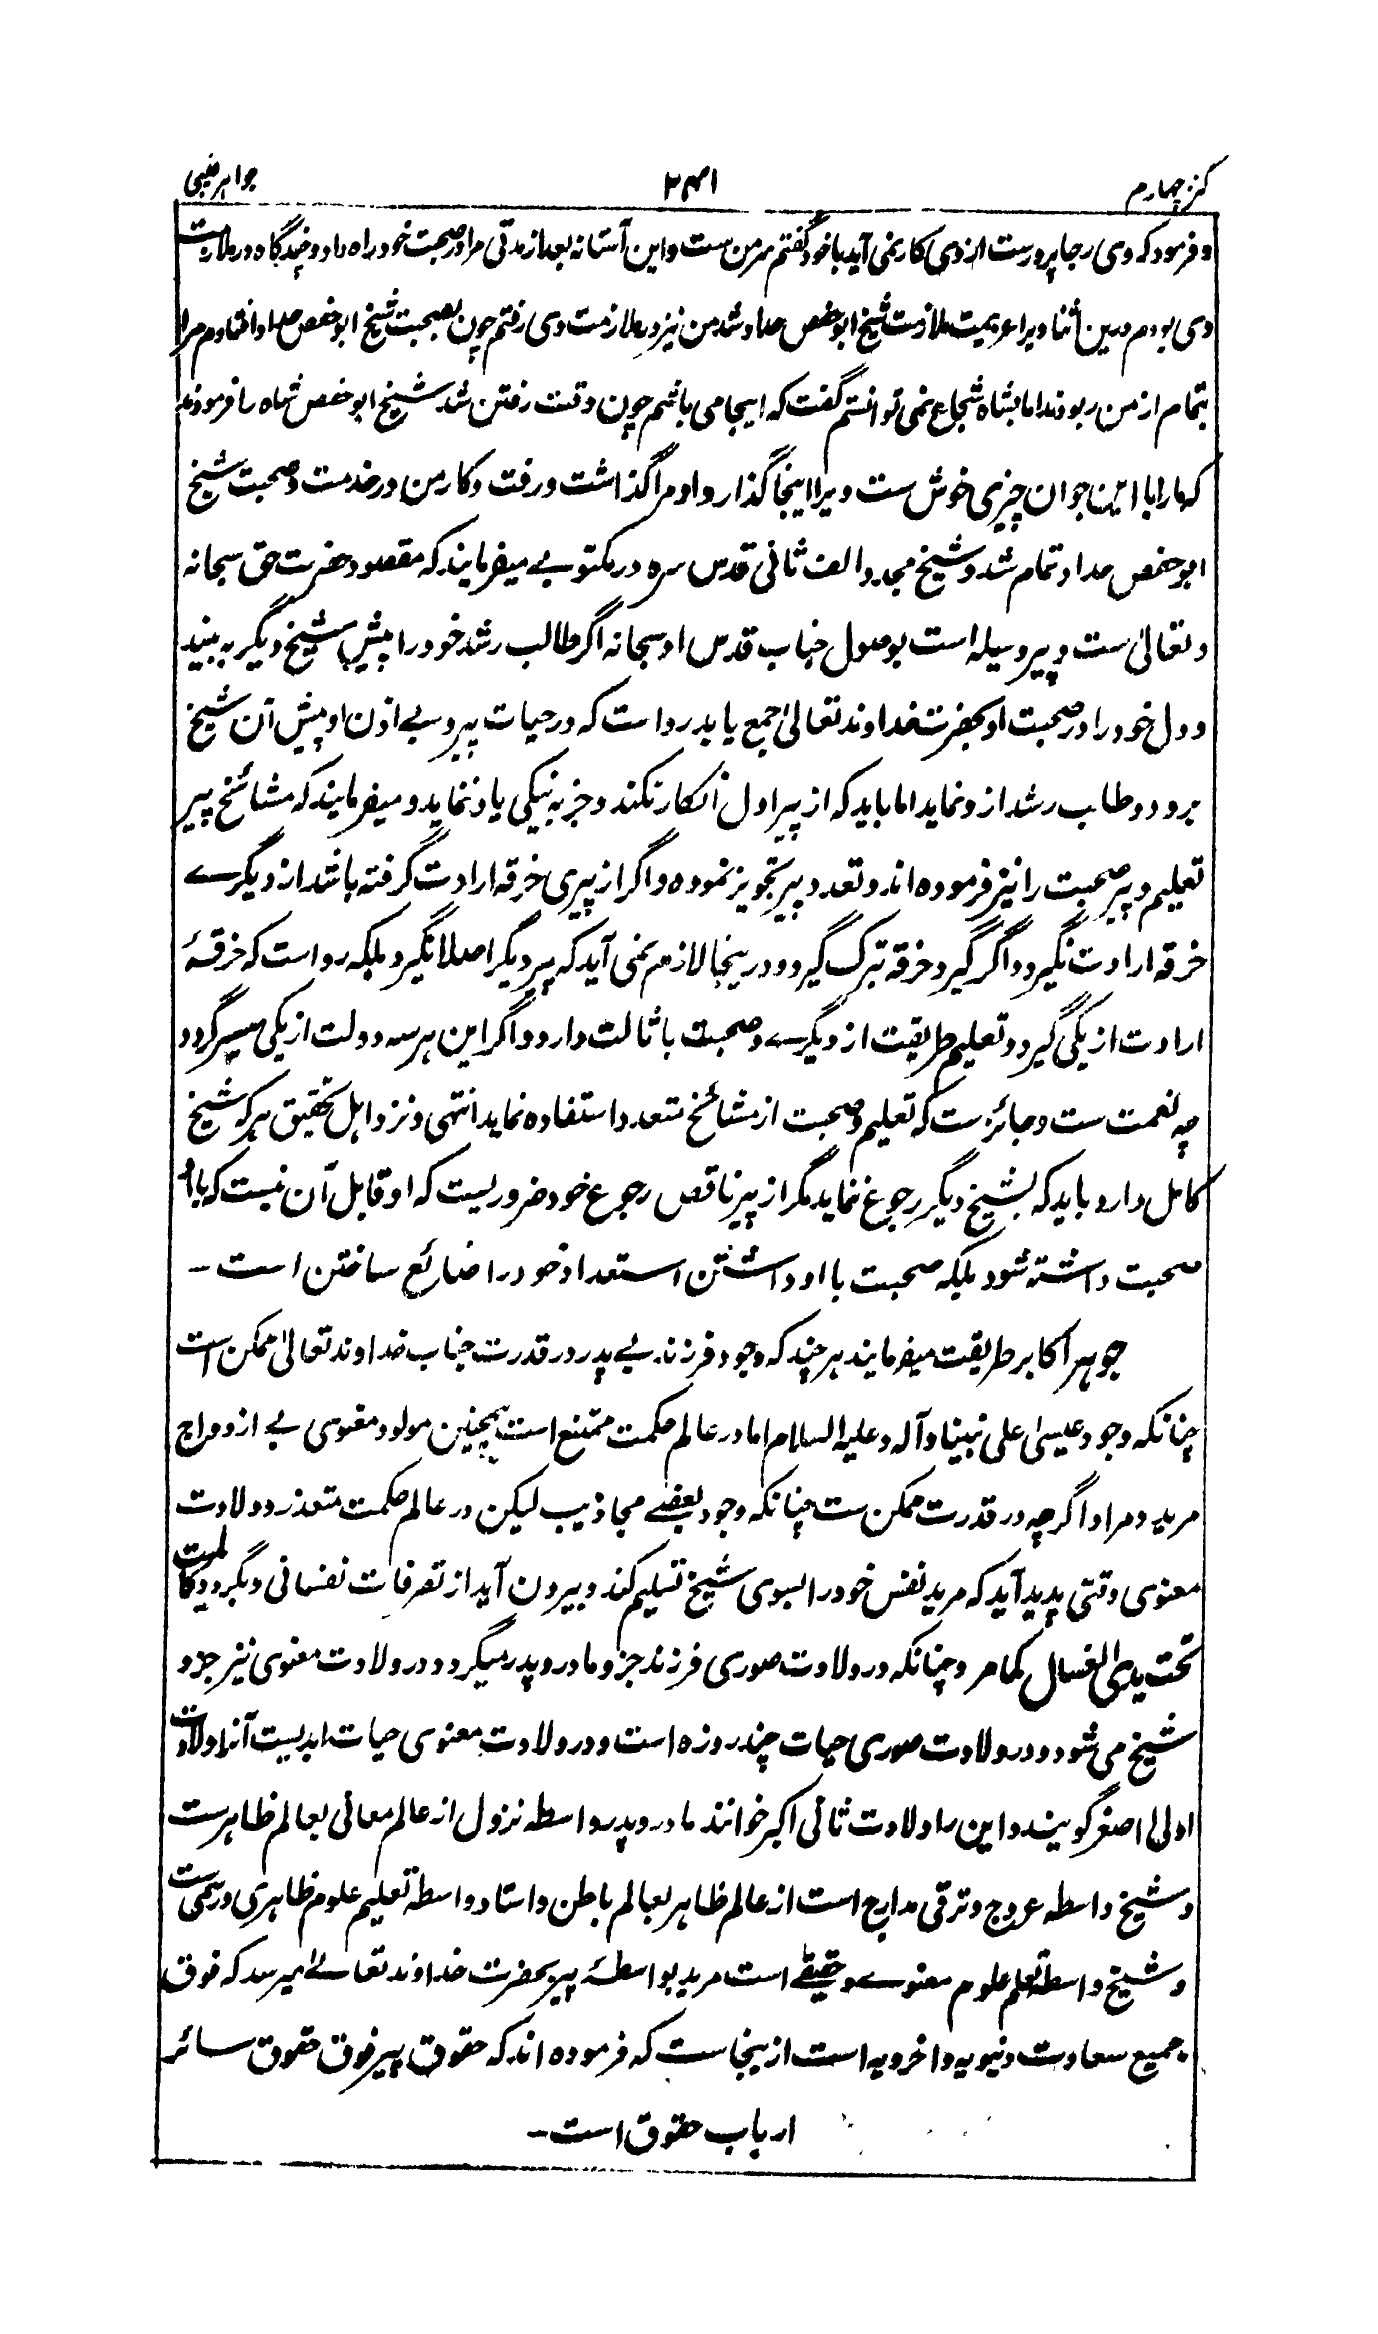 کنز چهارم
۲۴۱
جواهر غیبی
و فرمود که وی رجا پرورست از وی کار نمی آید با خود گفتم سر من ست و این آستانه بعد از مدتی مرا در صحبت خود راه داد و چندگاه در ملازمت
وی بودم درین اثنا ویرا عزیمت ملازمت شیخ ابو حفص حداد شد من نیز در ملازمت وی رفتم چون بصحبت شیخ ابو حفص حداد افتادم مرا
بتمام از من ربودند اما بشاه شجاع نمی توانستم گفت که اینجا می باشم چون وقت رفتن شد شیخ ابو حفص شاه را فرمودند
که ما را با این جوان چیزی خوش ست ویرا اینجا گذار و او مرا گذاشت و رفت و کار من در خدمت و صحبت شیخ
ابو حفص حداد تمام شد و شیخ مجدد الف ثانی قدس سره در مکتوبے میفرمایند که مقصود حضرت حق سبحانه
و تعالیٰ ست و پیر وسیله است بوصول جناب قدس او سبحانه اگر طالب رشد خود را پیش شیخ دیگر به بیند
و دل خود را در صحبت او بحضرت خداوند تعالیٰ جمع یابد رواست که در حیات پیر و بے اذن او پیش آن شیخ
برود و طلب رشد از و نماید اما باید که از پیر اول انکار نکند و جز به نیکی یاد ننماید و میفرمایند که مشائخ پیر
تعلیم و پیر صحبت را نیز فرموده اند و تعدد پیر تجویز نموده و اگر از پیری خرقه ارادت گرفته باشد از دیگرے
خرقه ارادت نگیرد و اگر گیرد خرقه تبرک گیرد و درینجا لازم نمی آید که پیر دیگر اصلا نگیرد بلکه رواست که خرقۂ
ارادت از یکی گیرد و تعلیم طریقت از دیگرے و صحبت با ثالث دارد و اگر این هر سه دولت از یکی میسر گردد
چه نعمت ست و جائزست که تعلیم و صحبت از مشائخ متعدد استفاده نماید انتهی و نزد اهل تحقیق هر که شیخ
کامل دارد باید که بشیخ دیگر رجوع ننماید مگر از پیر ناقص رجوع خود ضروریست که او قابل آن نیست که با او
صحبت داشته شود بلکه صحبت با او داشتن استعداد خود را ضائع ساختن است ۔
جوهر اکابر طریقت میفرمایند هر چند که وجود فرزند بے پدر در قدرت جناب خداوند تعالیٰ ممکن است
چنانکه وجود عیسیٰ علی نبینا و آله و علیه السلام اما در عالم حکمت ممتنع است همچنین مولود معنوی بے ازدواج
مرید و مراد اگر چه در قدرت ممکن ست چنانکه وجود بعضے مجاذیب لیکن در عالم حکمت متعذر و ولادت
معنوی وقتی پدید آید که مرید نفس خود را بسوی شیخ تسلیم کند و بیرون آید از تصرفات نفسانی و بگردد کالمیت
تحت یدی الغسال کما مر و چنانکه در ولادت صوری فرزند جزو مادر و پدر میگردد در ولادت معنوی نیز جزو
شیخ می شود و در ولادت صوری حیات چند روزه است و در ولادت معنوی حیات ابدیست آنرا ولادت
اولیٰ اصغر گویند و این را ولادت ثانی اکبر خوانند مادر و پدر واسطه نزول از عالم معانی بعالم ظاهرست
و شیخ واسطه عروج و ترقی مدارج است از عالم ظاهر بعالم باطن و استاد واسطه تعلیم علوم ظاهری و رسمی ست
و شیخ واسطه تعلم علوم معنوے و حقیقے است مرید بواسطۂ پیر بحضرت خداوند تعالےٰ میرسد که فوق
جمیع سعادت دنیویه و اخرویه است ازینجاست که فرموده اند که حقوق پیر فوق حقوق سائر
ارباب حقوق است ۔